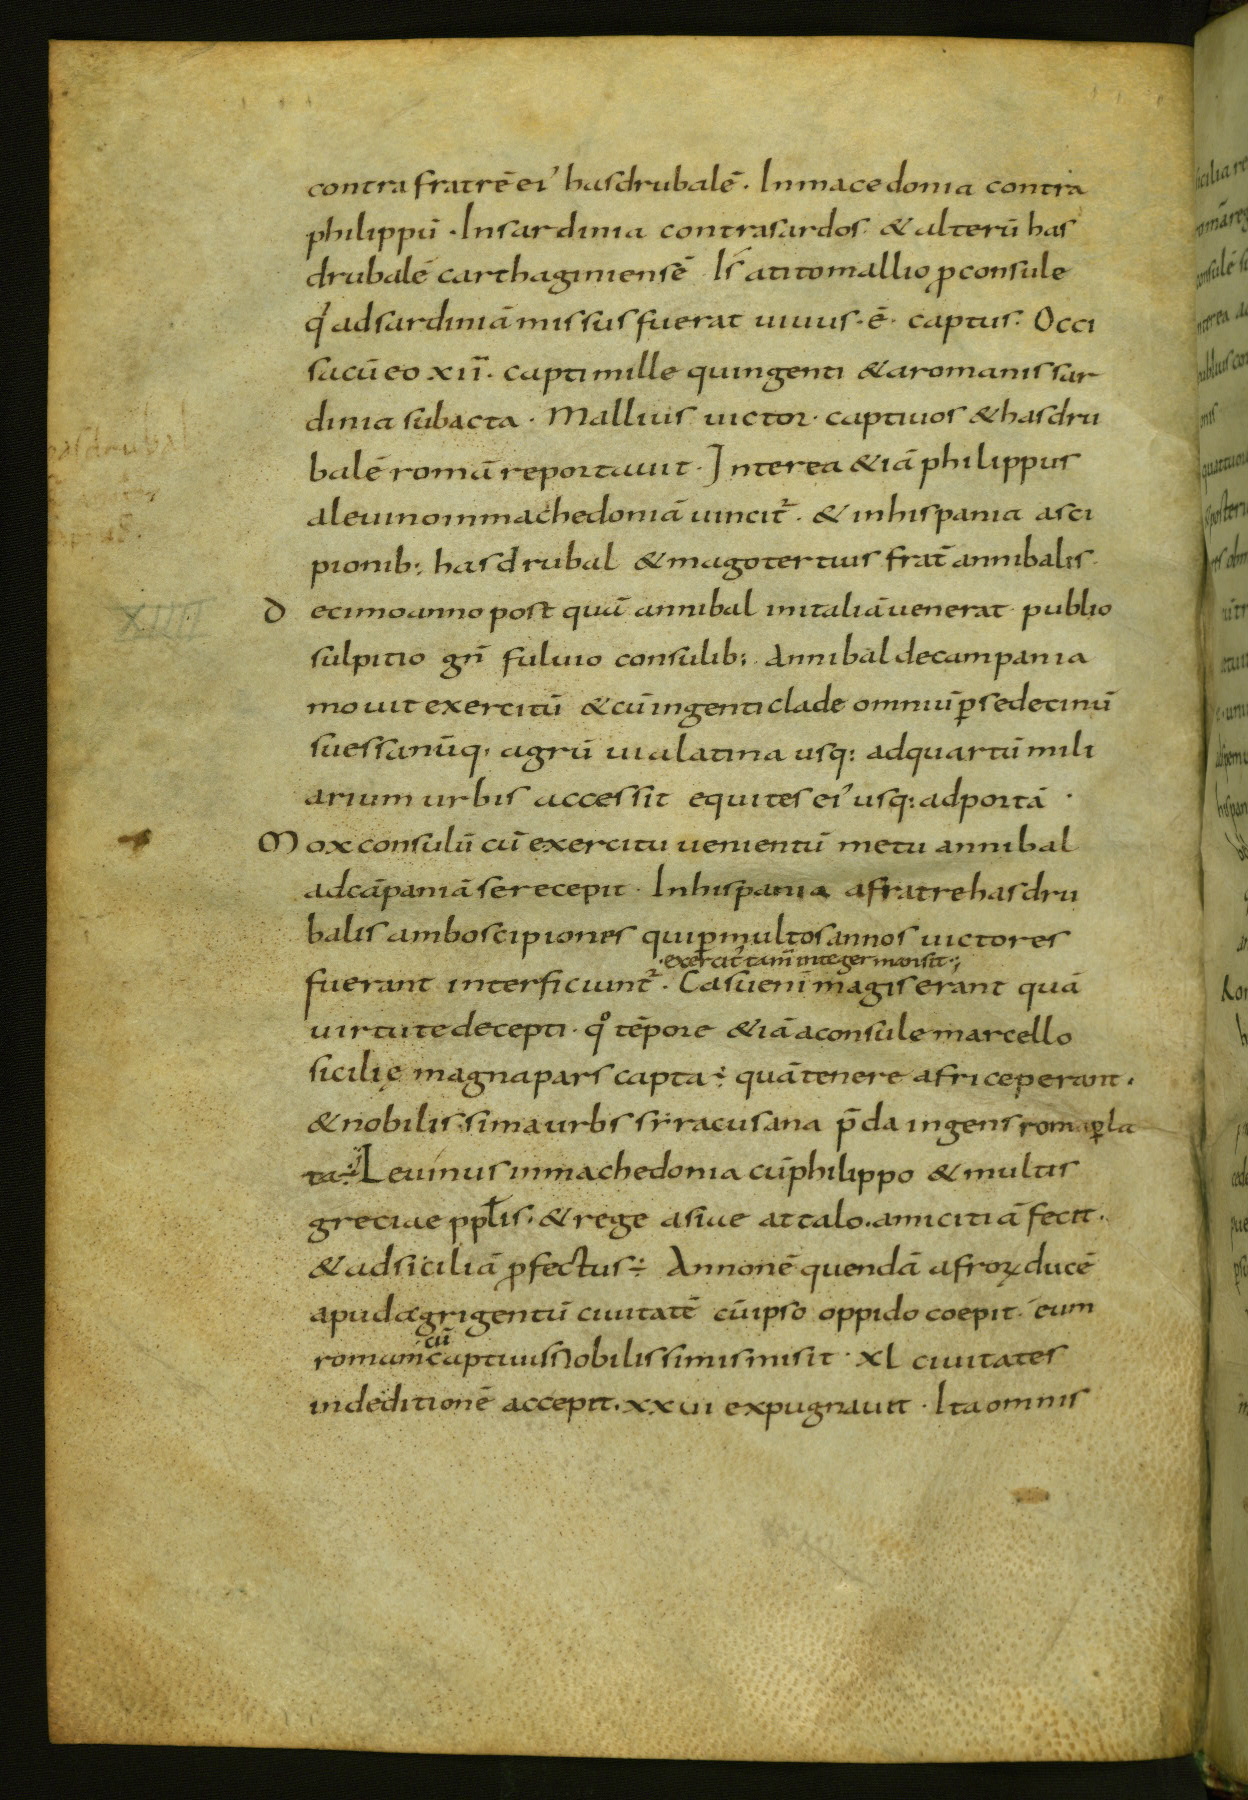 contra fratrē ei᾽ hasdrubalē. Inmacedonia contra
philippū. Insardinia contrasardos. & alterū has
drubalē carthaginiensē Is atitomallio ꝓconsule
q᾽ adsardiniā missus fuerat uiuus. ē. captus. Occi
sa cū eo xii. capti mille quingenti & aromanis sar
dinia subacta. Mallius uictor. captiuos & hasdru
balē romā reportauit. Interea & iā philippus
aleuino inmachedoniā uincit᷑. & inhispania asci
pionib; hasdrubal & mago tertius frat̄ annibalis.
Decimo anno post quā annibal initaliā uenerat. publio
sulpitio gn̄ fuluio consulib; Annibal decampania
mouit exercitū & cū ingenti clade omniū ꝑ sedecinū
suessanūq; agrū uia latina usq; adquartū mili
arium urbis accessit equites ei᾽ usq; adportā.
Mox consulū cū exercitu uenientū metu annibal
adcāpaniā se recepit. Inhispania afratre hasdru
balis ambo scipiones qui ꝑ multos annos uictores
.exercit᾽ tam̄ integer mansit.;
fuerant interficiunt᷑. Casu enī magis erant quā
uirtute decepti. qo tēpore & iā aconsule marcello
sicilię magna pars capta÷ quā tenere afri ceperant.
& nobilissima urbs sirracusana p̄da ingens romā ꝑla
ta÷ Leuinus inmachedonia cū philippo & multis
greciae pplis. & rege asiae attalo. amicitiā fecit.
& adsiciliā ꝓfectus÷ Annonē quendā afroꝝ ducē
apud agrigentū ciuitatē cū ipso oppido coepit. eum
cū
romam captiuis nobilissimis misit. xl ciuitates
indeditionē accepit. xxui expugnauit. Ita omnis
XIIII